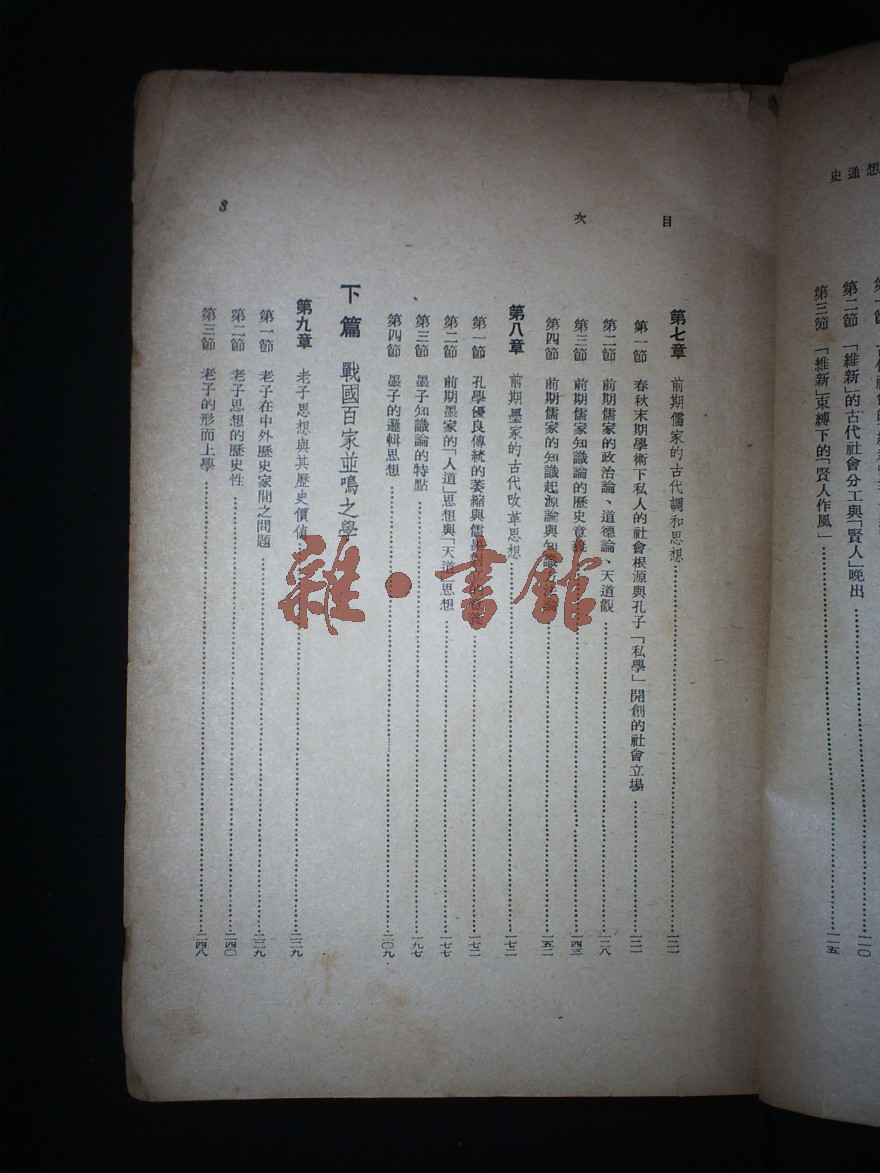 想通史
第二節 「維新」的古代社會分工與「賢人」晚出……一一〇
第三節 「維新」束縛下的「賢人作風」……一一五
目次
第七章 前期儒家的古代調和思想……一二一
第一節 春秋末期學術下私人的社會根源與孔子「私學」開創的社會立場……一二一
第二節 前期儒家的政治論、道德論、天道觀……一二八
第三節 前期儒家知識論的歷史意義……一四三
第四節 前期儒家的知識起源論與知識方法論……一五二
第八章 前期墨家的古代改革思想……一七二
第一節 孔學優良傳統的萎縮與儒墨對立的……一七二
第二節 前期墨家的「人道」思想與「天道」思想……一七七
第三節 墨子知識論的特點……一九七
第四節 墨子的邏輯思想……二〇九
下篇 戰國百家並鳴之學
第九章 老子思想與其歷史價值……二二九
第一節 老子在中外歷史家間之問題……二二九
第二節 老子思想的歷史性……二四〇
第三節 老子的形而上學……二四八
3
雜·書館